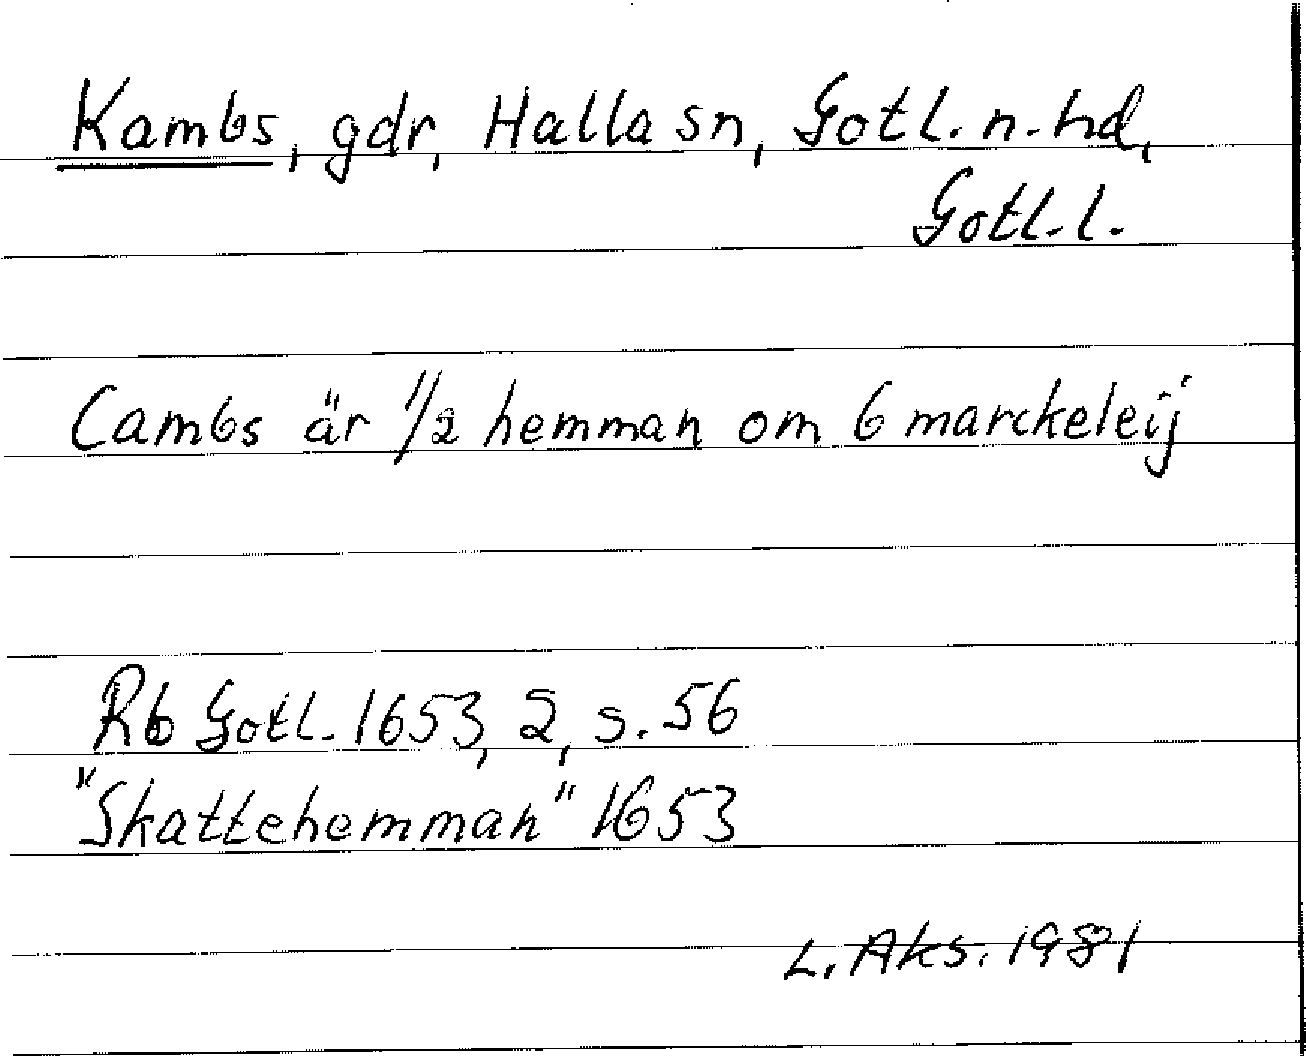 Kambs, gdr, Halla sn, Gotl. n. hd,
Gotl. l.
Cambs är 1/2 hemman om 6 marckeleij
Rb Gotl. 1653, 2, s. 56
"Skattehemman" 1653
L. Aks. 1981